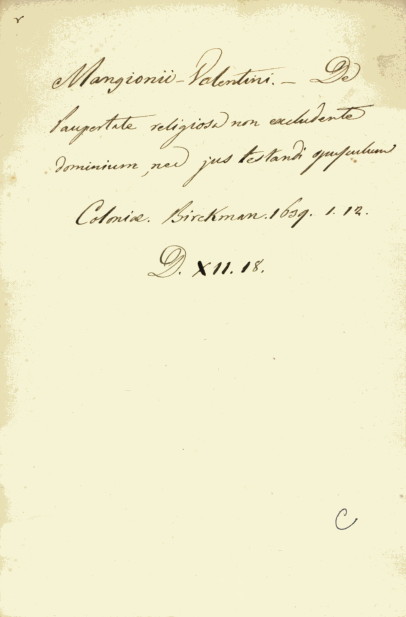 Mangionii - Valentini. - De
Paupertate religiosa non excludente
dominium, nec jus testandi opusculum
Coloniæ. Birckman. 1639. 1. 12.
D. XII. 18.
C